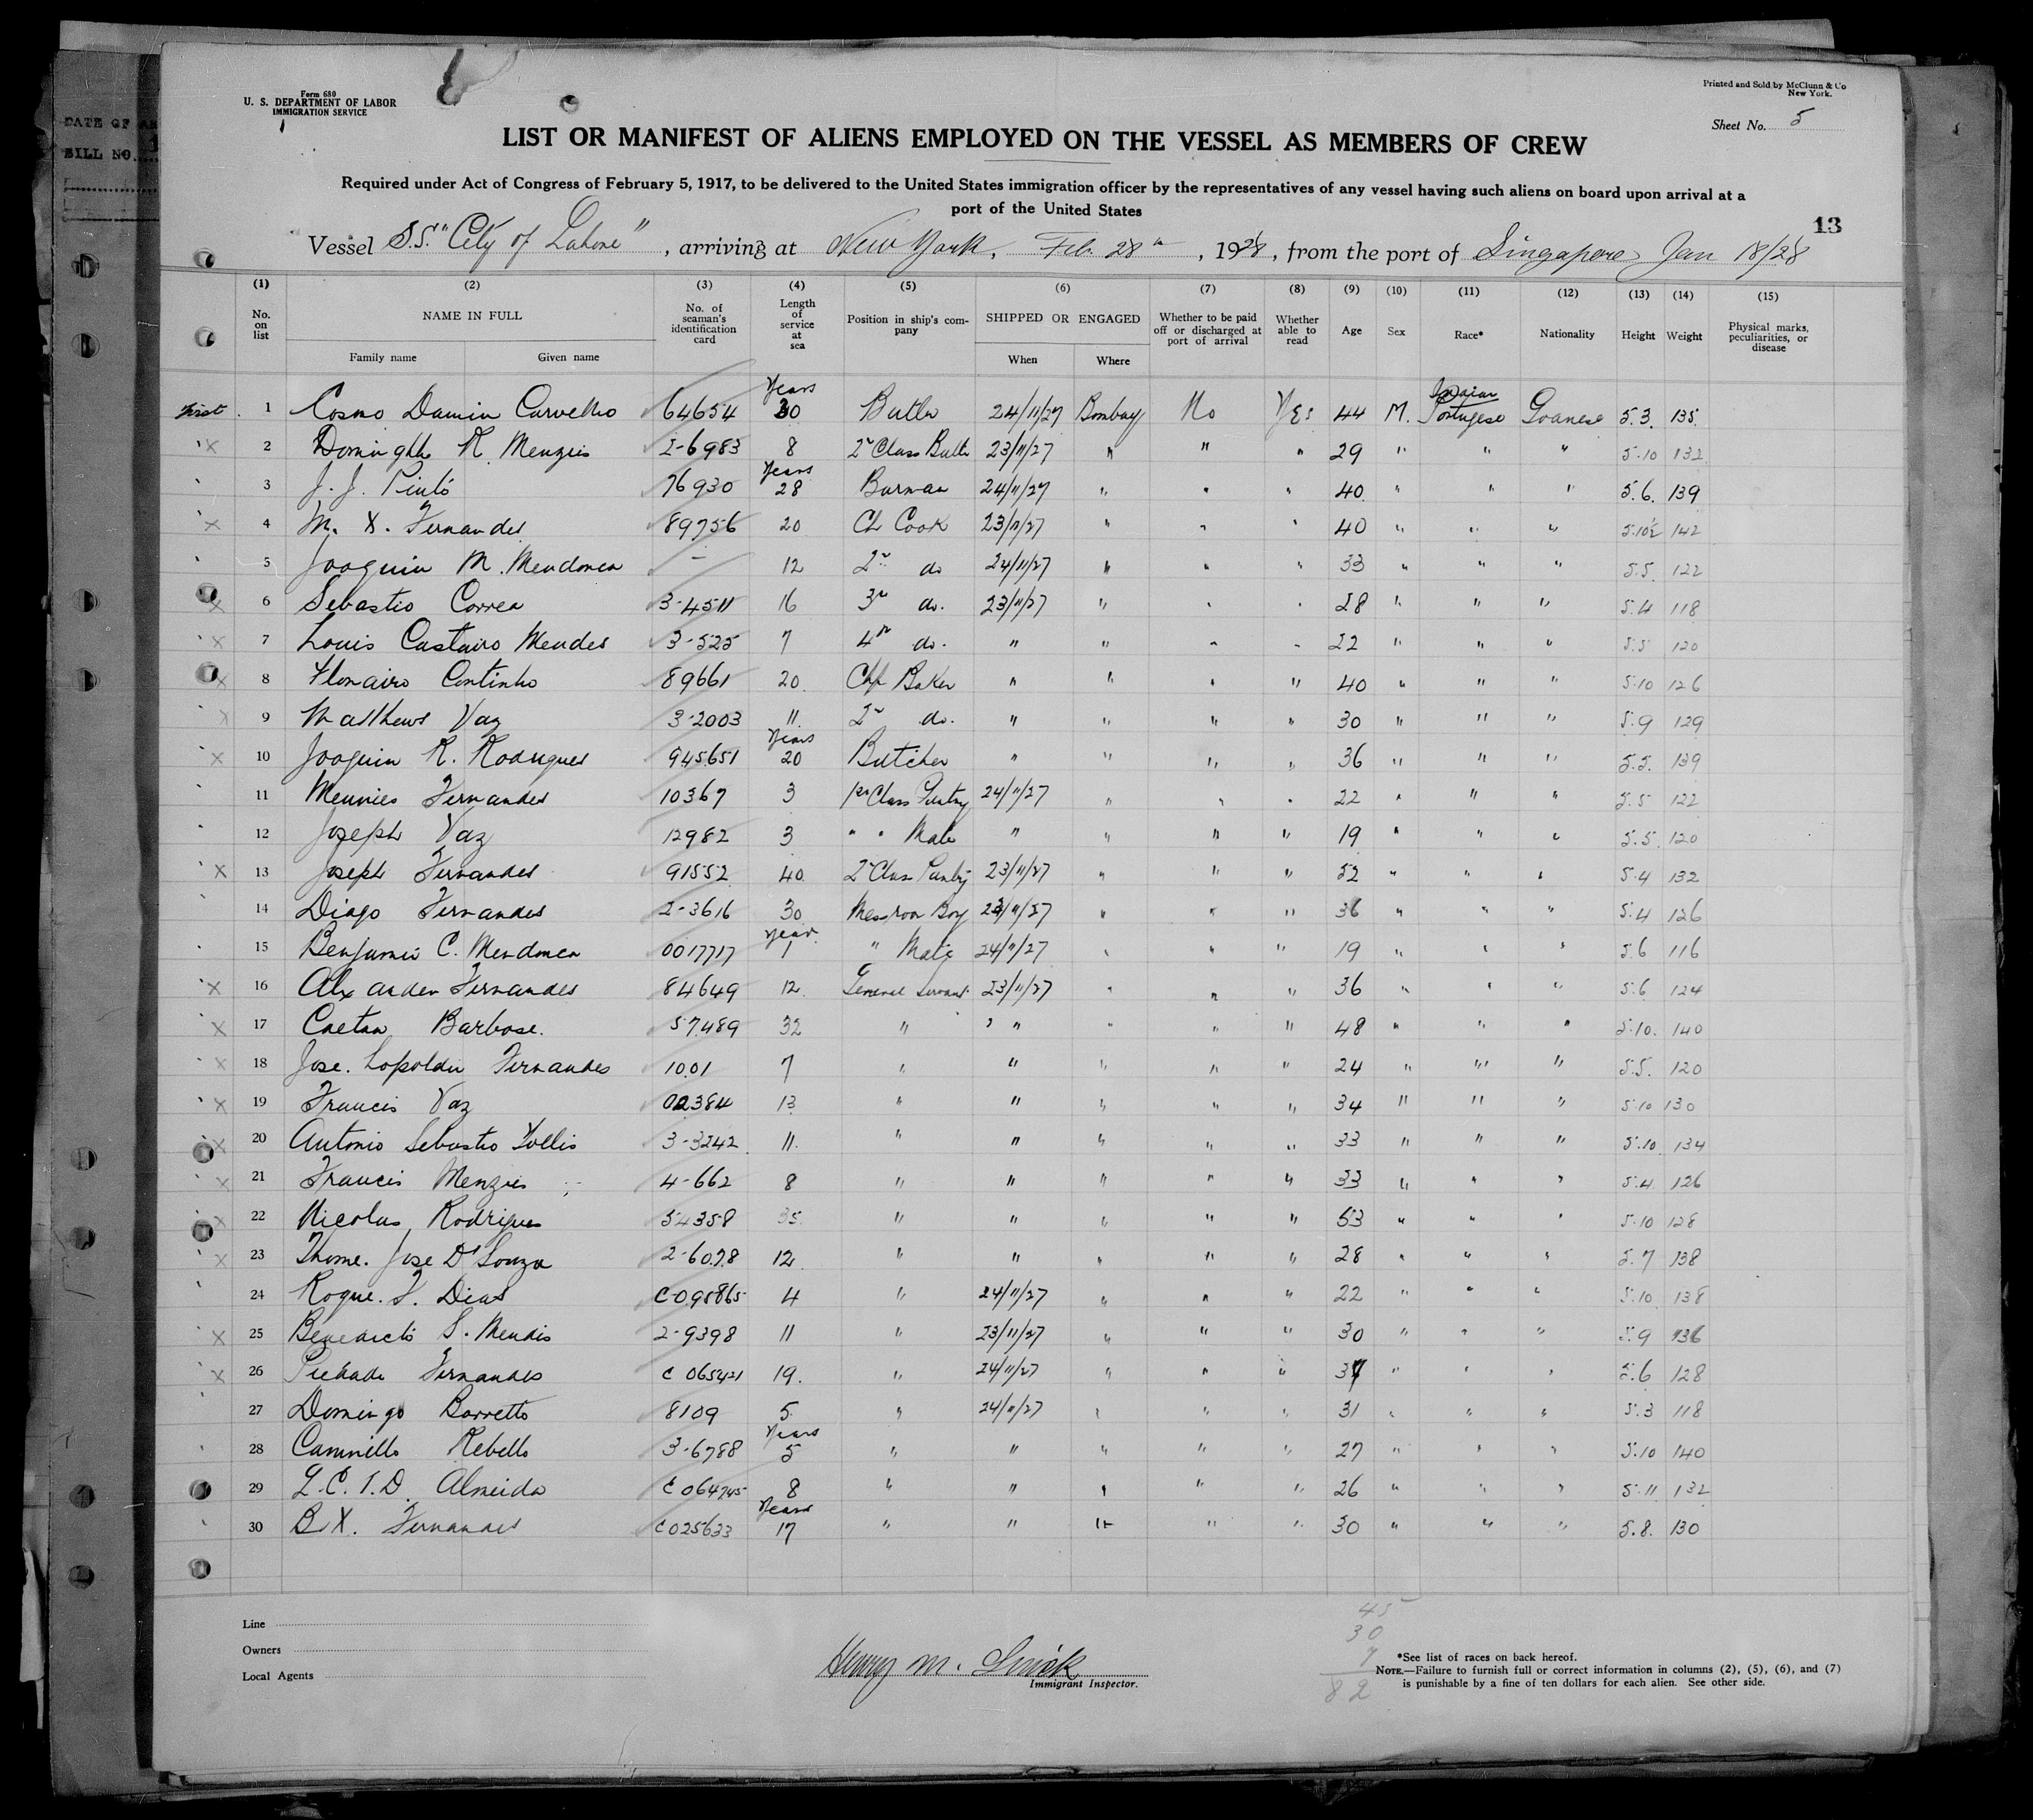 DATE OF AR
BILL NO. 1
Form 680
U. S. DEPARTMENT OF LABOR
IMMIGRATION SERVICE
Printed and Sold by McClunn & Co
New York.
Sheet No. 5
LIST OR MANIFEST OF ALIENS EMPLOYED ON THE VESSEL AS MEMBERS OF CREW
Required under Act of Congress of February 5, 1917, to be delivered to the United States immigration officer by the representatives of any vessel having such aliens on board upon arrival at a
port of the United States
13
Vessel S.S. "City of Lahore", arriving at New York, Feb. 28th, 1928, from the port of Singapore Jan 18/28
(1) (2) (3) (4) (5) (6) (7) (8) (9) (10) (11) (12) (13) (14) (15)
No. on list NAME IN FULL No. of seaman's identification card Length of service at sea Position in ship's company SHIPPED OR ENGAGED Whether to be paid off or discharged at port of arrival Whether able to read Age Sex Race* Nationality Height Weight Physical marks, peculiarities, or disease
Family name Given name When Where
first 1 Cosmo Damin Carvelho 64654 Years 30 Butler 24/11/27 Bombay No Yes 44 M. Indian Portugese Goanese 5.3. 135.
x 2 R. Menzies 2-6983 8 2nd Class Butler 23/11/27 " " " 29 " " " 5.10 132
3 J. J. Pinto 76930 Years 28 Barman 24/11/27 " " " 40 " " " 5.6. 139
x 4 M. X. Fernandes 89756 20 Ch Cook 23/11/27 " " " 40 " " " 5.10½ 142
5 Joaquim M. Mendonca - 12 2nd do 24/11/27 " " " 33 " " " 5.5. 122
x 6 Sebastio Correa 3-4511 16 3rd do. 23/11/27 " " " 28 " " " 5.4 118
x 7 Louis Mendes 3-525 7 4th do. " " " " 22 " " " 5.5 120
x 8 Continho 89661 20 Chf Baker " " " " 40 " " " 5.10 126
x 9 Matthews Vaz 3-2003 11. 2nd do. " " " " 30 " " " 5.9 129
x 10 Joaquim R. Rodrigues 945651 Years 20 Butcher " " " " 36 " " " 5.5. 139
11 Menries Fernandes 10367 3 1st Class Pantry 24/11/27 " " " 22 " " " 5.5 122
12 Joseph Vaz 12982 3 " " Mate " " " " 19 " " " 5.5. 120
x 13 Joseph Fernandes 91552 40 2nd Class Pantry 23/11/27 " " " 52 " " " 5.4 132
14 Diago Fernandes 2-3616 30 Messroom Boy 23/11/27 " " " 36 " " " 5.4 126
15 Benjamin C. Mendonca 0017717 year 1 " Mate 24/11/27 " " " 19 " " " 5.6 116
x 16 Alxander Fernandes 84649 12. General Servant 23/11/27 " " " 36 " " " 5.6 124
x 17 Caetan Barbose. 57489 32 " " " " " 48 " " " 5.10. 140
x 18 Jose. Lopoldin Fernandes 1001 7 " " " " " 24 " " " 5.5. 120
x 19 Francis Vaz 02384 13 " " " " " 34 " " " 5.10 130
x 20 Antonio Sebastio 3-3242 11. " " " " " 33 " " " 5.10. 134
x 21 Francis Menzies 4-662 8 " " " " " 33 " " " 5.4. 126
x 22 Nicolas Rodrigues 54358 35. " " " " " 53 " " " 5.10 128
x 23 Thome. Jose D'Souza 2-6078 12. " " " " " 28 " " " 5.7 138
24 Roque. F. Dias C-095865 4 " 24/11/27 " " " 22 " " " 5.10 138
x 25 Benedicto S. Mendis 2-9398 11 " 23/11/27 " " " 30 " " " 5.9 136
x 26 Piedade Fernandes C 065421 19. " 24/11/27 " " " 37 " " " 5.6 128
27 Domingo Barretto 8109 5. " 24/11/27 " " " 31 " " " 5.3 118
28 Caminillo Rebello 3-6788 Years 5 " " " " " 27 " " " 5.10 140
29 L. C. I. D. Almeida C 064745 8 " " " " " 26 " " " 5.11 132
30 B. X. Fernandes C025633 Years 17 " " " " " 30 " " " 5.8. 130
45
30
7
82
Line
Owners
Local Agents
Henry M.
Immigrant Inspector.
*See list of races on back hereof.
NOTE.—Failure to furnish full or correct information in columns (2), (5), (6), and (7)
is punishable by a fine of ten dollars for each alien. See other side.